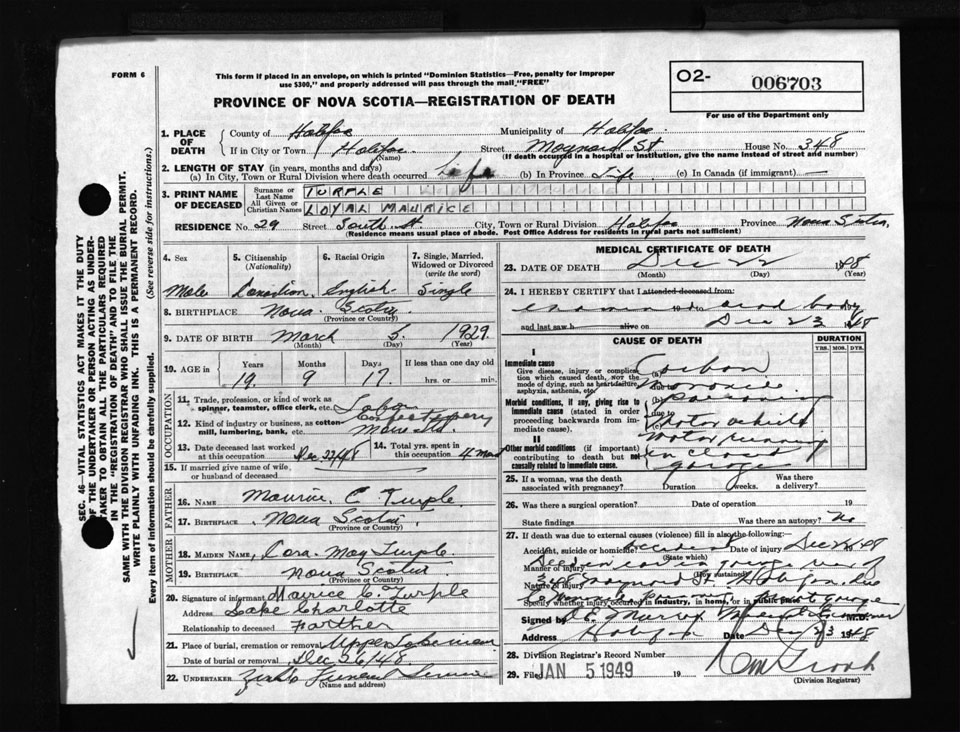 FORM 6
This form if placed in an envelope, on which is printed "Dominion Statistics—Free, penalty for improper
use $300," and properly addressed will pass through the mail "FREE"
O2- 006703
For use of the Department only
PROVINCE OF NOVA SCOTIA—REGISTRATION OF DEATH
1. PLACE OF DEATH
County of Halifax Municipality of Halifax
If in City or Town Halifax (Name) Street Maynard St House No. 348
(If death occurred in a hospital or institution, give the name instead of street and number)
2. LENGTH OF STAY (in years, months and days)
(a) In City, Town or Rural Division where death occurred life (b) In Province Life (c) In Canada (if immigrant) —
3. PRINT NAME OF DECEASED
Surname or Last Name TURPLE
All Given or Christian Names LOYAL MAURICE
RESIDENCE No. 29 Street South St. City, Town or Rural Division Halifax Province Nova Scotia
(Residence means usual place of abode. Post Office Address for residents in rural parts not sufficient)
4. Sex Male
5. Citizenship (Nationality) Canadian
6. Racial Origin English
7. Single, Married, Widowed or Divorced (write the word) Single
8. BIRTHPLACE Nova Scotia (Province or Country)
9. DATE OF BIRTH March (Month) 5 (Day) 1929 (Year)
10. AGE in Years 19 Months 9 Days 17 If less than one day old hrs. or min.
OCCUPATION
11. Trade, profession, or kind of work as spinner, teamster, office clerk, etc. Labor
12. Kind of industry or business, as cotton mill, lumbering, bank, etc.
13. Date deceased last worked at this occupation Dec 22/48
14. Total yrs. spent in this occupation 4
15. If married give name of wife, or husband of deceased
FATHER
16. NAME Maurice C. Turple
17. BIRTHPLACE Nova Scotia (Province or Country)
MOTHER
18. MAIDEN NAME Cora May Turple
19. BIRTHPLACE Nova Scotia (Province or Country)
20. Signature of informant Maurice C. Turple
Address Lake Charlotte
Relationship to deceased Farther
21. Place of burial, cremation or removal Upper
Date of burial or removal Dec 26/48
22. UNDERTAKER Funeral Service
(Name and address)
MEDICAL CERTIFICATE OF DEATH
23. DATE OF DEATH Dec 22 1948
(Month) (Day) (Year)
24. I HEREBY CERTIFY that I attended deceased from:
dead body
and last saw h alive on Dec 23 1948
CAUSE OF DEATH
DURATION
YRS. MOS. DYS.
I
Immediate cause
Give disease, injury or complication which caused death, not the mode of dying, such as heart failure, asphyxia, asthenia, etc.
(a) Carbon monoxide
due to
Morbid conditions, if any, giving rise to immediate cause (stated in order proceeding backwards from immediate cause).
(b) poisoning
due to
(c) Motor vehicle
II
Other morbid conditions (if important) contributing to death but not causally related to immediate cause.
motor running
in closed
garage
25. If a woman, was the death associated with pregnancy? Duration weeks. Was there a delivery?
26. Was there a surgical operation? Date of operation 19
State findings Was there an autopsy? No
27. If death was due to external causes (violence) fill in also the following:
Accident, suicide or homicide accident Date of injury Dec 22 1948
(State which)
Manner of injury in garage rear of
(How sustained)
Nature of injury 348 Maynard St.
Specify whether injury occurred in industry, in home, or in public place garage
Signed by M.D.
Address Halifax Date Dec 23 1948
28. Division Registrar's Record Number
29. Filed JAN 5 1949 19
(Division Registrar)
SEC. 46—VITAL STATISTICS ACT MAKES IT THE DUTY
OF THE UNDERTAKER OR PERSON ACTING AS UNDERTAKER
TO OBTAIN ALL THE PARTICULARS REQUIRED
IN THE "REGISTRATION OF DEATH" AND TO FILE THE
SAME WITH THE DIVISION REGISTRAR WHO SHALL ISSUE THE BURIAL PERMIT.
WRITE PLAINLY WITH UNFADING INK. THIS IS A PERMANENT RECORD.
Every item of information should be carefully supplied. (See reverse side for instructions.)